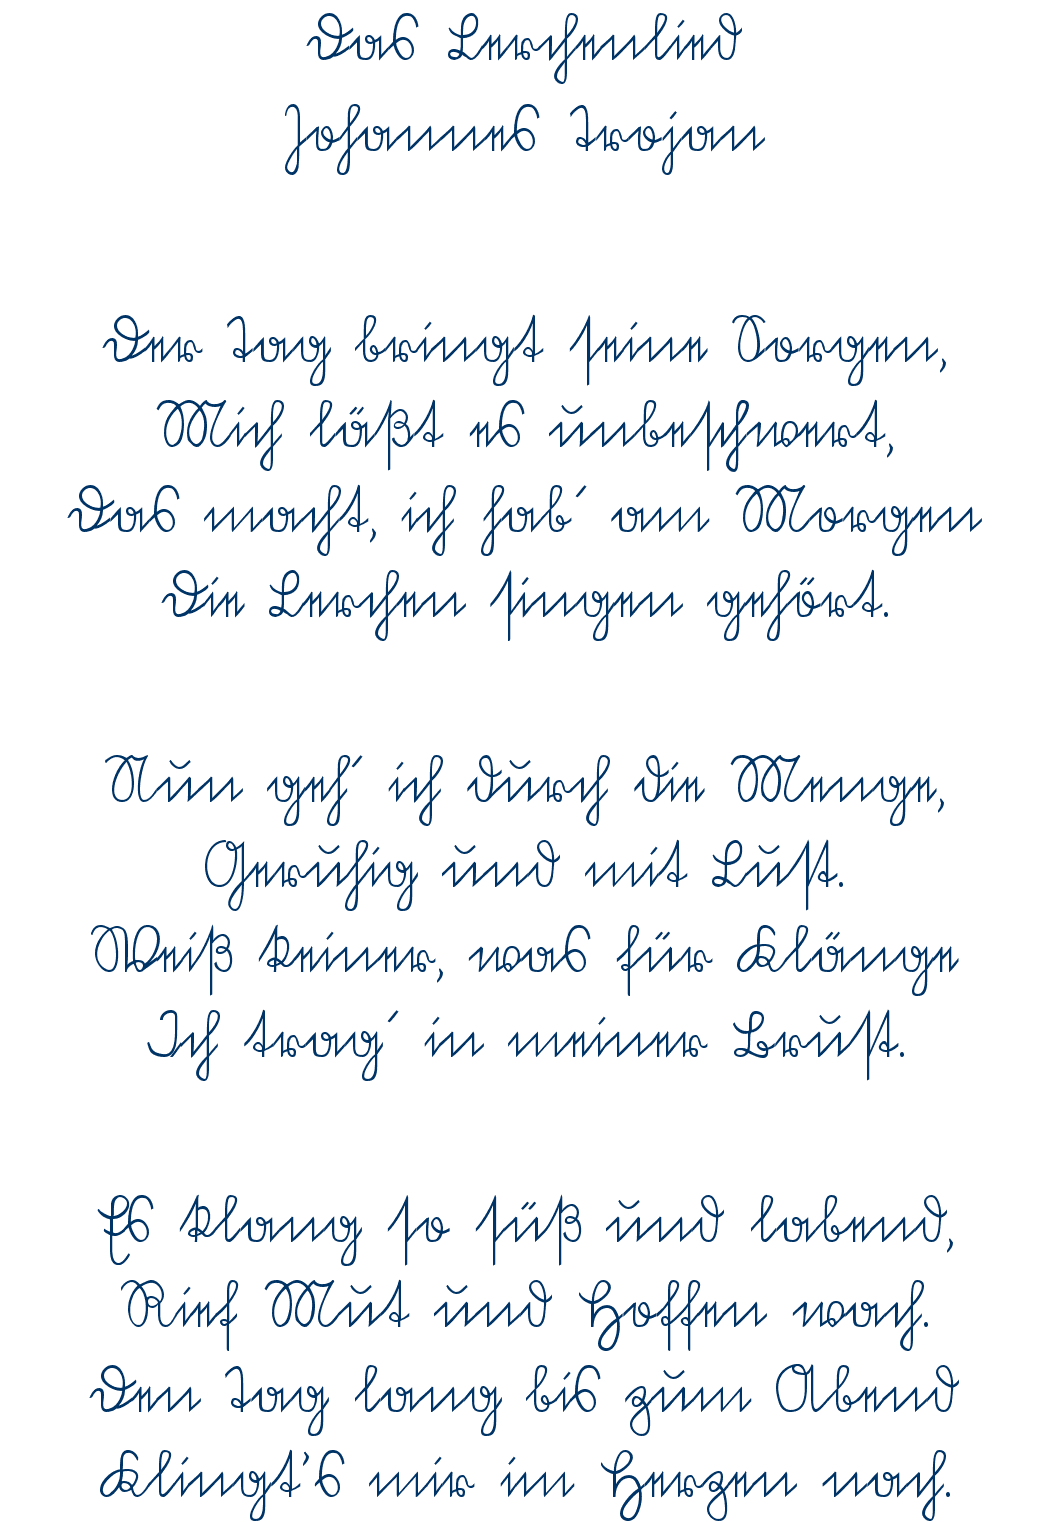 Das Lerchenlied
Johannes Trojan
Der Tag bringt seine Sorgen,
Mich läßt es unbeschwert,
Das macht, ich hab´ am Morgen
Die Lerchen singen gehört.
Nun geh´ ich durch die Menge,
Geruhig und mit Lust.
Weiß keiner, was für Klänge
Ich trag´ in meiner Brust.
Es klang so süß und labend,
Rief Mut und Hoffen wach.
Den Tag lang bis zum Abend
Klingt's mir im Herzen nach.